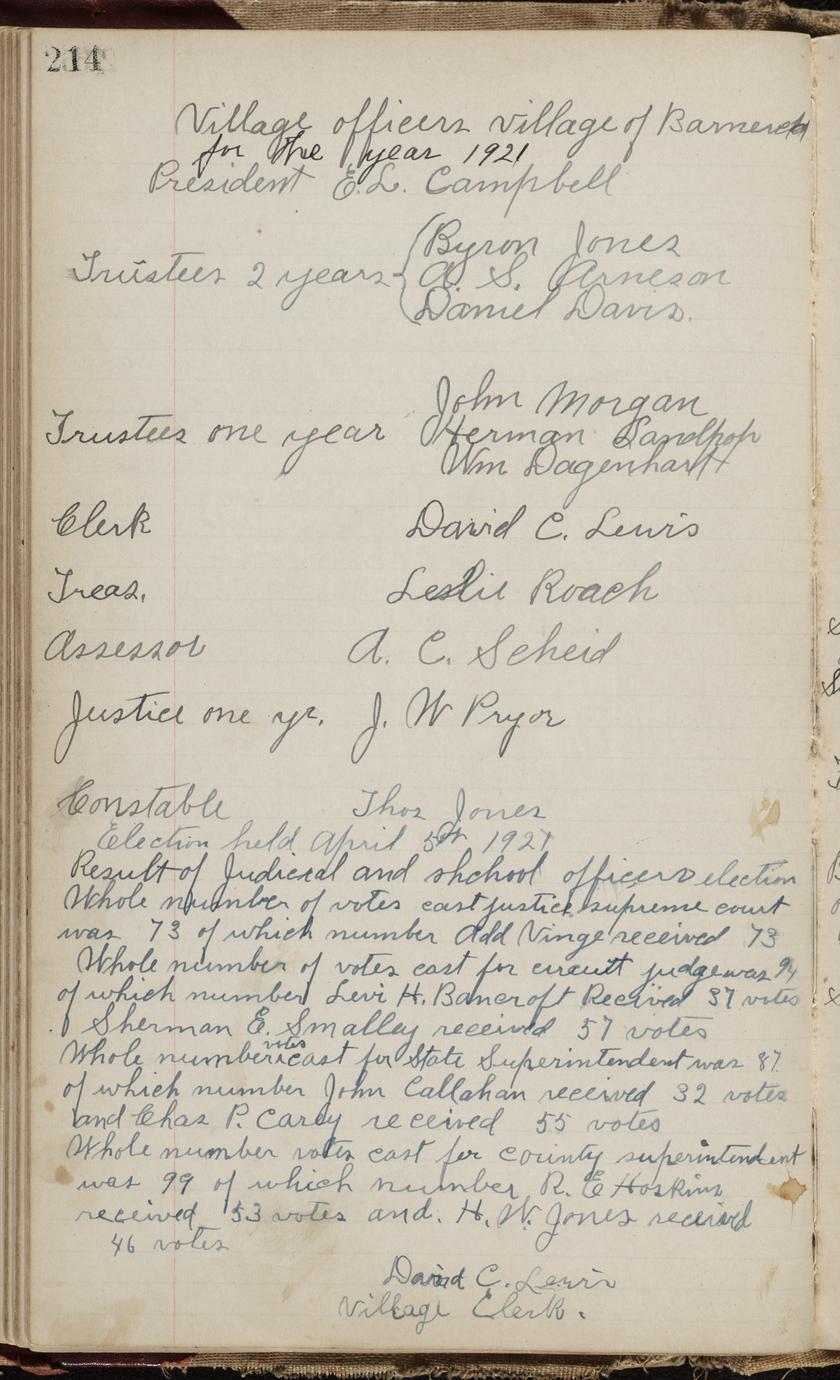 214
Village officers village of Barneveld
for the year 1921
President E.L. Campbell
Byron Jones
Trustees 2 years A. S. Arneson
Daniel Davis.
John Morgan
Trustees one year Herman Sandhop
Wm Dagenhart
Clerk David C. Lewis
Treas. Leslie Roach
Assessor A. C. Scheid
Justice one yr. J. W Pryor
Constable Thos Jones
Election held April 5th 1921
Result of Judicial and shchool officers election
Whole number of votes cast justice supreme court
was 73 of which number Add Vinge received 73
Whole number of votes cast for circuit judge was 94
of which number Levi H. Bancroft Recived 37 votes
Sherman E. Smalley received 57 votes
Whole number votes cast for State Superintendent was 87
of which number John Callahan received 32 votes
and Chas P. Carey received 55 votes
Whole number votes cast for county superintendent
was 99 of which number R. E Hoskins
received 53 votes and. H. W. Jones received
46 votes
David C. Lewis
Village Clerk.